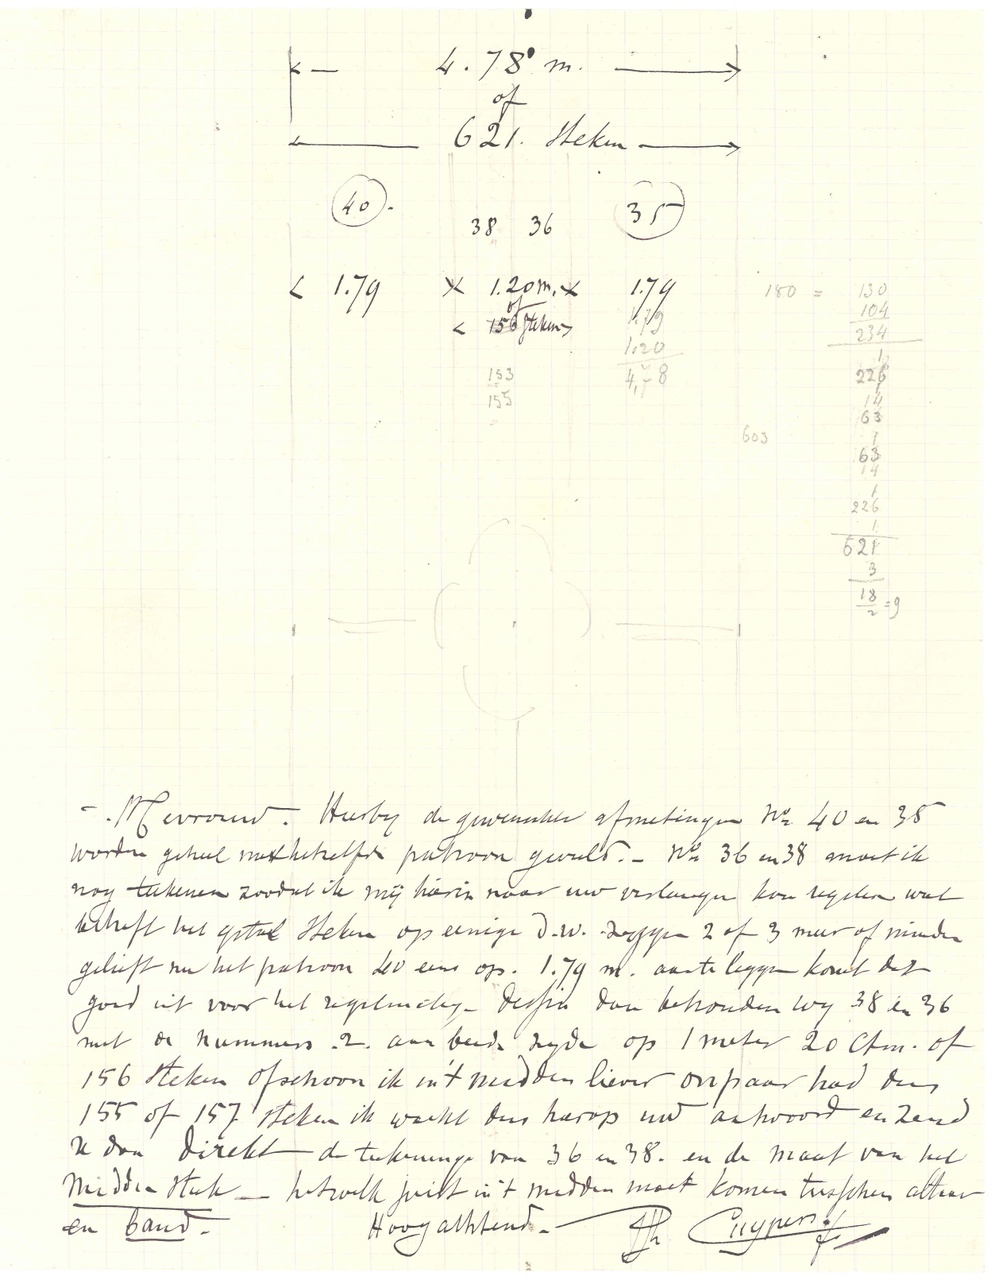 4.78 m.
of
621. Steken
40. 35
38 36
1.79 × 1.20 m. × 1.79
of
156 steken
1.79
1.20
4,78
153
155
180 = 130
104
234
1
226
1
14
63
603
1
63
14
1
226
1
621
3
18
2 = 9
Mevrouw. Hierby de gewenschte afmetingen No 40 en 35
worden geheel met hetzelfde patroon gevuld. - No 36 en 38 moet ik
nog teekenen zoodat ik mij hierin naar uw verlangen kan regelen wat
betreft het getal Steken op eenige d.w. zeggen 2 of 3 meer of minder
gelieft nu het patroon 40 eens op. 1.79 m. aan te leggen komt dit
goed uit voor het regelmatig dessin dan behouden wy 38 en 36
met de nummers .2. aan beide zyde op 1 meter 20 Ctm. of
156 Steken ofschoon ik in't midden liever onpaar had dus
155 of 157 steken ik wacht dus hierop uw antwoord en zend
U dan direkt de teekeninge van 36 en 38. en de maat van het
Midden stuk — hetwelk juist in't midden moet komen tusschen altaar
en band.
Hoogachtend. Cuypers